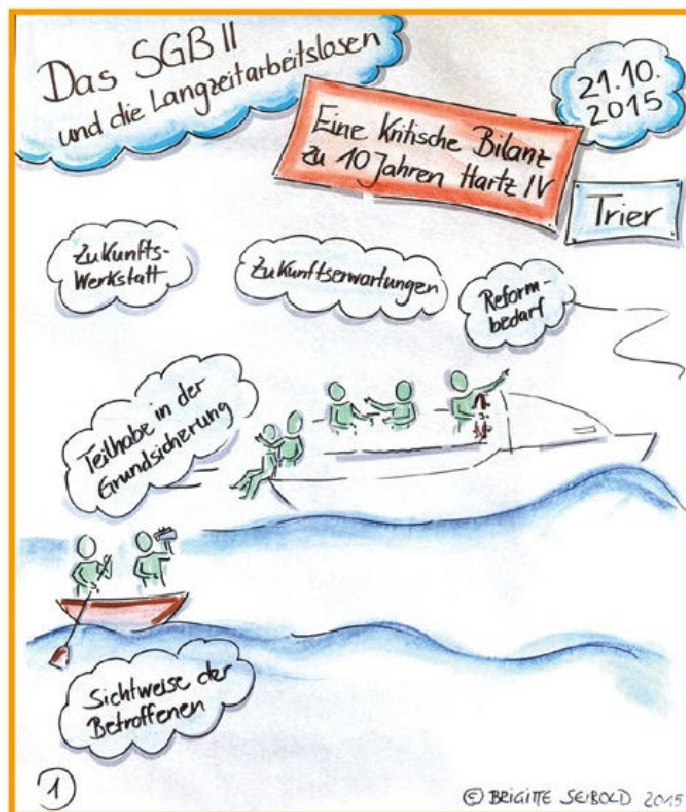 Das SGB II
und die Langzeitarbeitslosen
21.10.
2015
Eine Kritische Bilanz
zu 10 Jahren Hartz IV
Trier
Zukunfts-
Werkstatt
Zukunftserwartungen
Reform-
bedarf
Teilhabe in der
Grundsicherung
Sichtweise der
Betroffenen
1
© BRIGITTE SEIBOLD 2015